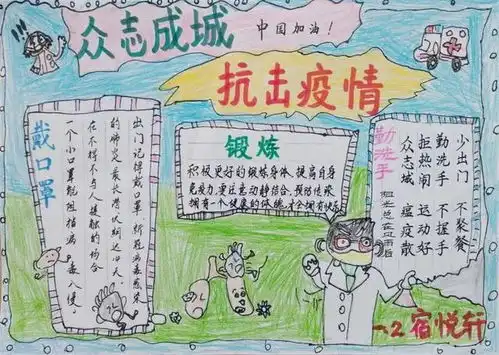 众志成城
中国加油！
抗击疫情
戴口罩
出门记得戴口罩，新冠病毒感染
的肺炎，最长潜伏期达
在不得不与人接触的场合
一个小口罩能阻挡病毒入侵。
锻炼
积极更好的锻炼身体，提高自身
免疫力，要注意动静结合，预防传染
拥有一个健康的体魄，才会拥有快乐
勤洗手
少出门 不聚餐
勤洗手 不握手
拒热闹 运动好
众志城 瘟疫散
阳光总在风雨后
一.2 宿悦轩